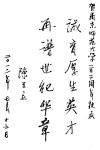 贺南京师范大学一百二十周年校庆
诚育厚生英才
再谱世纪华章
陈
二〇二二年 月十五日